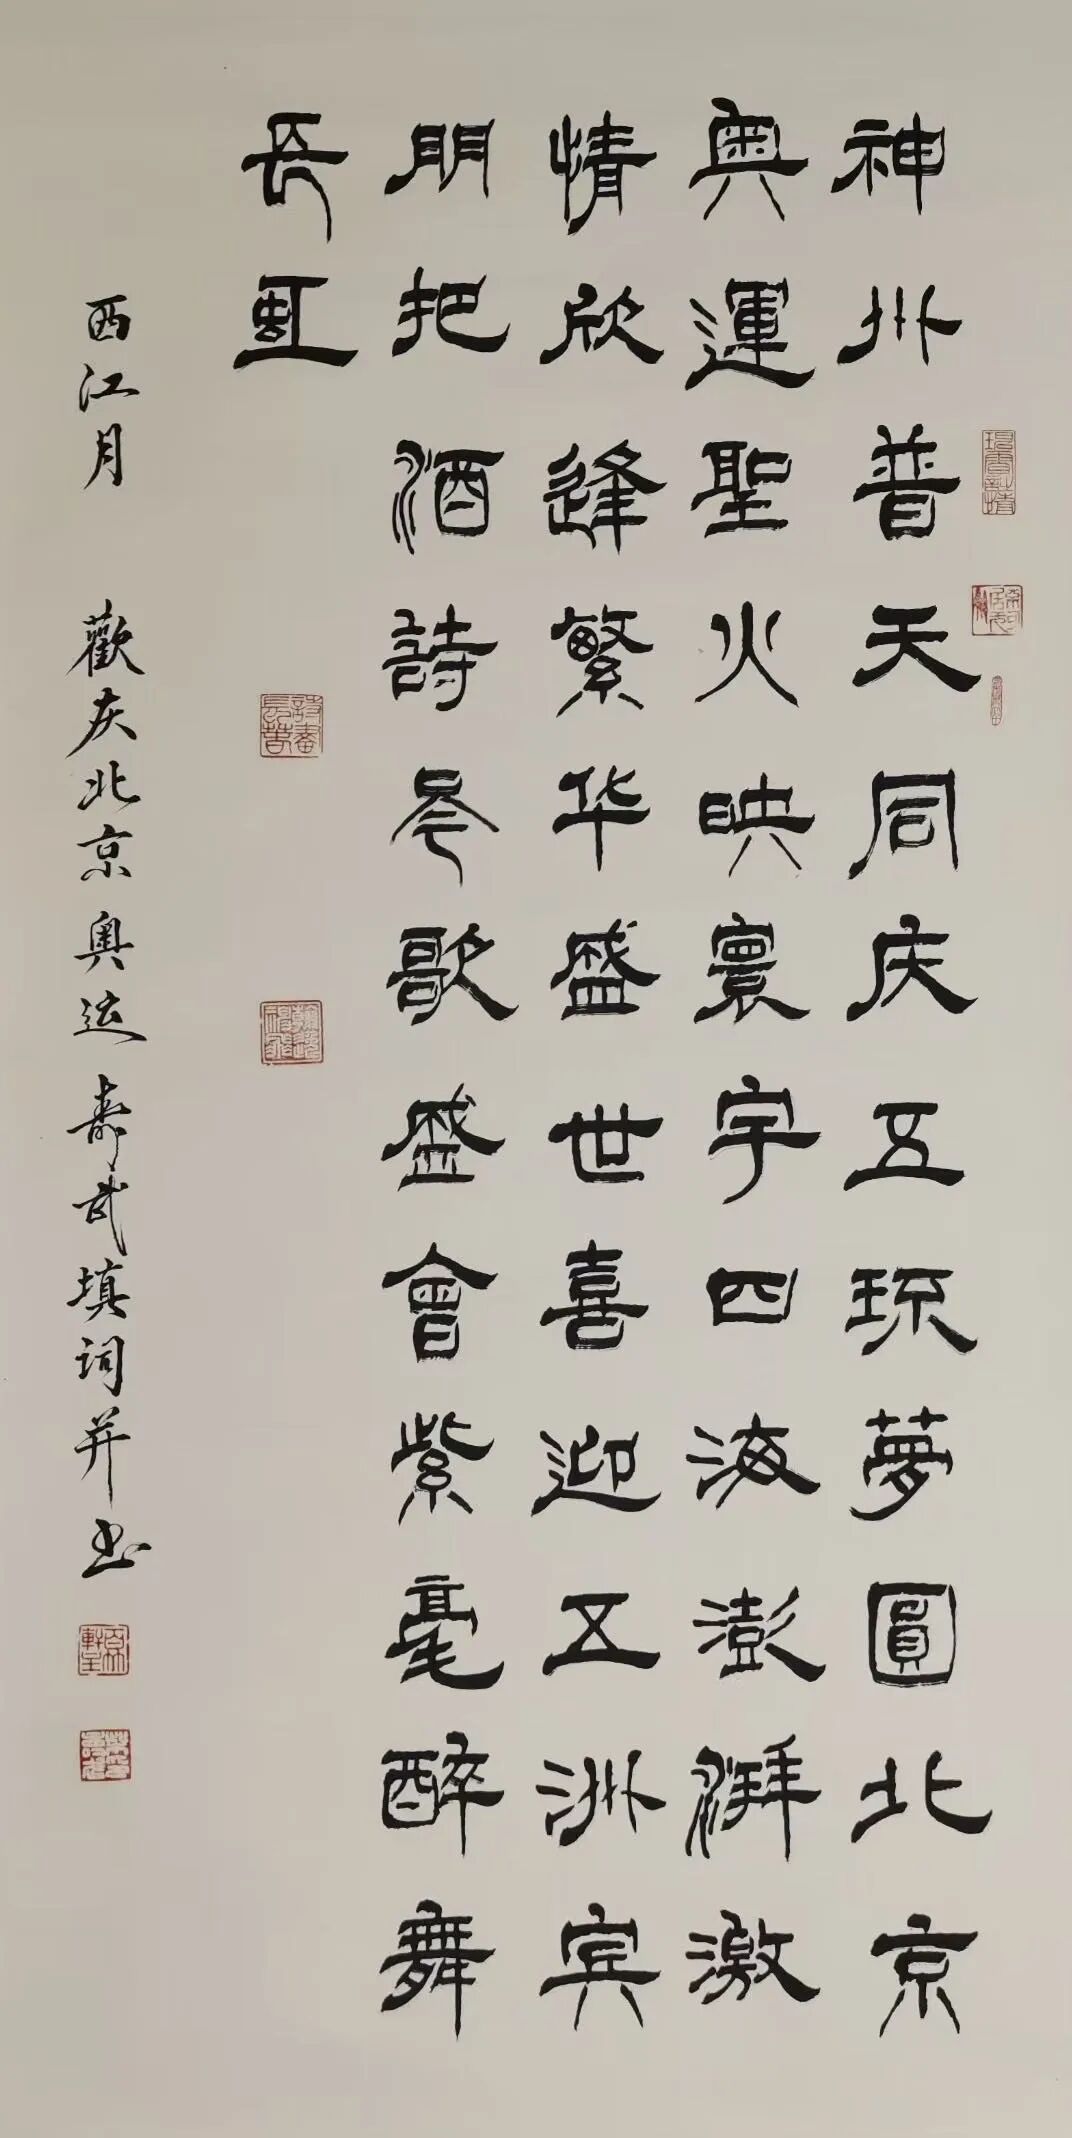 神州普天同庆五环夢圓北京
奥運聖火映寰宇四海澎湃激
情欣逢繁华盛世喜迎五洲宾
朋把酒詩吟歌盛會紫毫醉舞
長虹
西江月 歡庆北京奥运 寿武填词并书